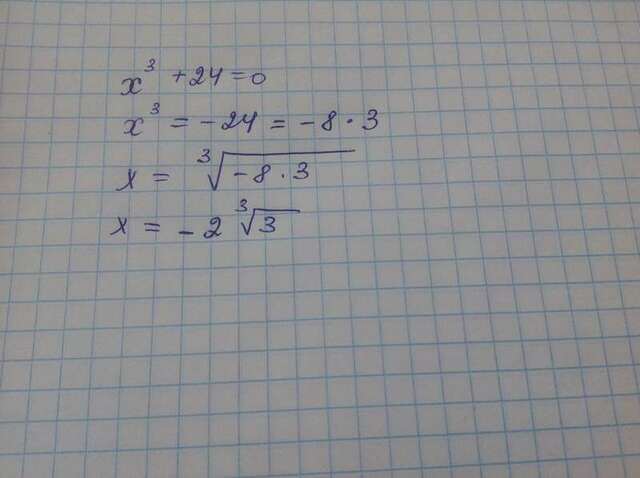 x³ + 24 = 0
x³ = - 24 = - 8 · 3
x = ∛(- 8 · 3)
x = - 2 ∛3